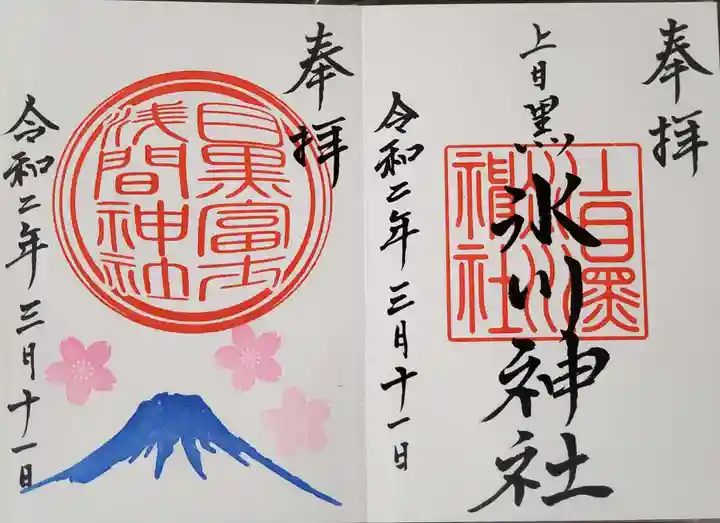 奉拝
上目黒氷川神社
上目黒氷川神社
令和二年三月十一日
奉拝
目黒富士
浅間神社
令和二年三月十一日